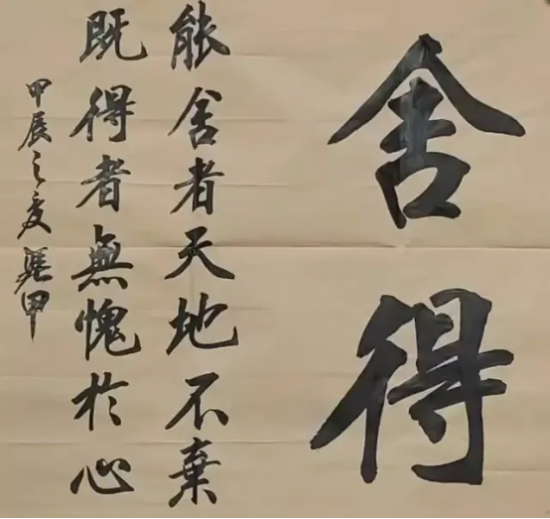 舍得
能舍者天地不棄
既得者無愧於心
甲辰之夏 甲